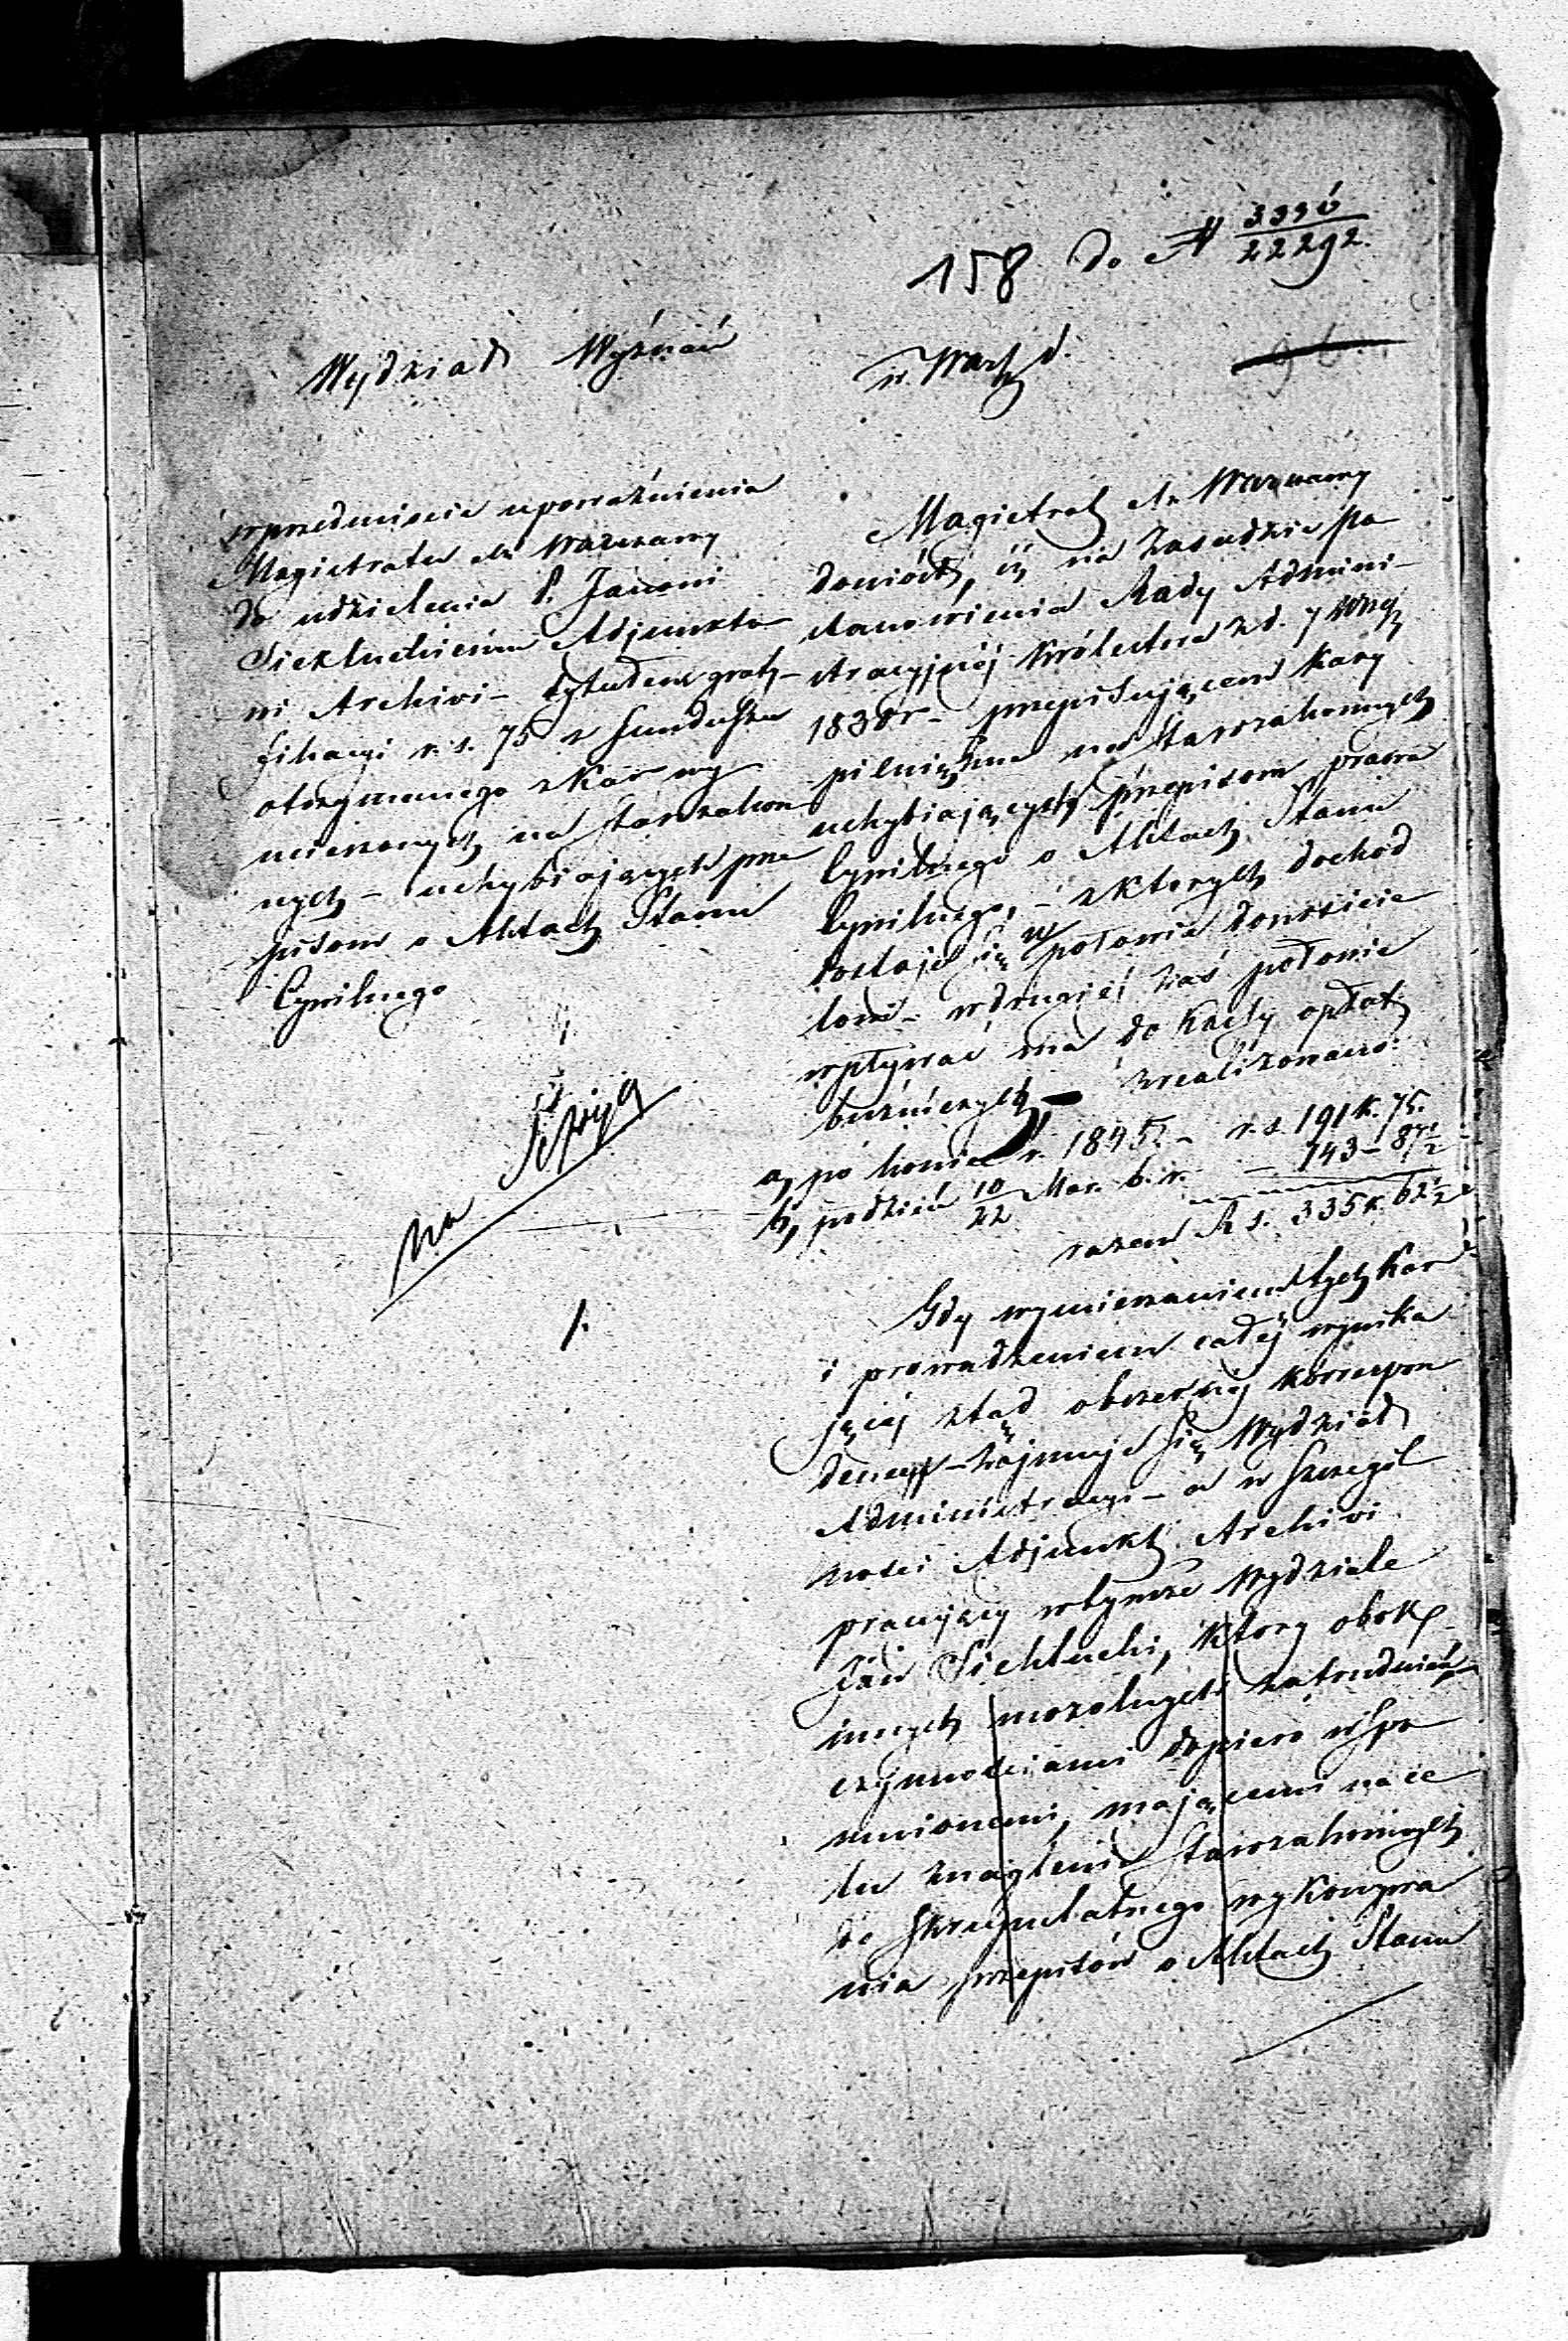 158 do N 3396/22292.
Wydział Wyznań
w Warsz d.
96.
w przedmiocie upoważnienia
Magistratu M. Warszawy
do udzielenia P. Janowi
Siekluckiemu Adjunkto
wi Archiwi – tytułem graty-
fikacyi r. s. 75 z funduszu
otrzymanego z kar wy
mierzonych na starozakon
nych – uchybiających prze
pisom o Aktach Stanu
Cywilnego
na Sessyą
1.
Magistrat M. Warszawy
doniósł, iż na zasadzie Po
stanowienia Rady Admini-
stracyjnéj Królestwa z d. 7 Wrz
1830 r – przepisującem kary
pieniężne na Starozakonnych
uchybiających przepisom prawa
Cywilnego o Aktach Stanu
Cywilnego, – z których dochód
dostaje się w połowie donosicie
lowi – w drugiéj zaś połowie
wpływać ma do Kassy opłat
bużniczych – zrealizowano:
a, po koniec r. 1845. – r. s. 191 k. 75.
b, po dzień 10/22 Mar. b. r. – 143 – 87 1/2
razem R s. 335 k. 62 1/2
Gdy wymierzaniem tych kar
i prowadzeniem całéj wynika
jącéj ztąd obszernéj korrespon
dencyi – zajmuje się Wydział
Administracyi – a w szczegól
ności Adjunkt Archiwi
pracujący w tymże Wydziale
Jan Sieklucki, który obok
innych mozolnych zatrudnień
czynnościami dopiero wspo
mnionemi, mającemi na ce
lu znaglenie Starozakonnych
do skrupulatnego wykonywa
nia przepisów o Aktach Stanu